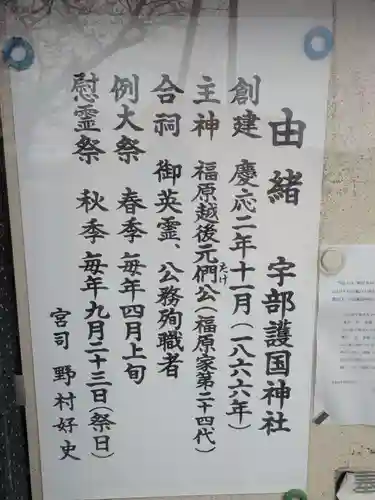 由緒 宇部護国神社
創建 慶応二年十一月(一八六六年)
主神 福原越後元僴公(福原家第二十四代)
たけ
合祠 御英霊、公務殉職者
例大祭 春季 毎年四月上旬
慰霊祭 秋季 毎年九月二十三日(祭日)
宮司 野村好史